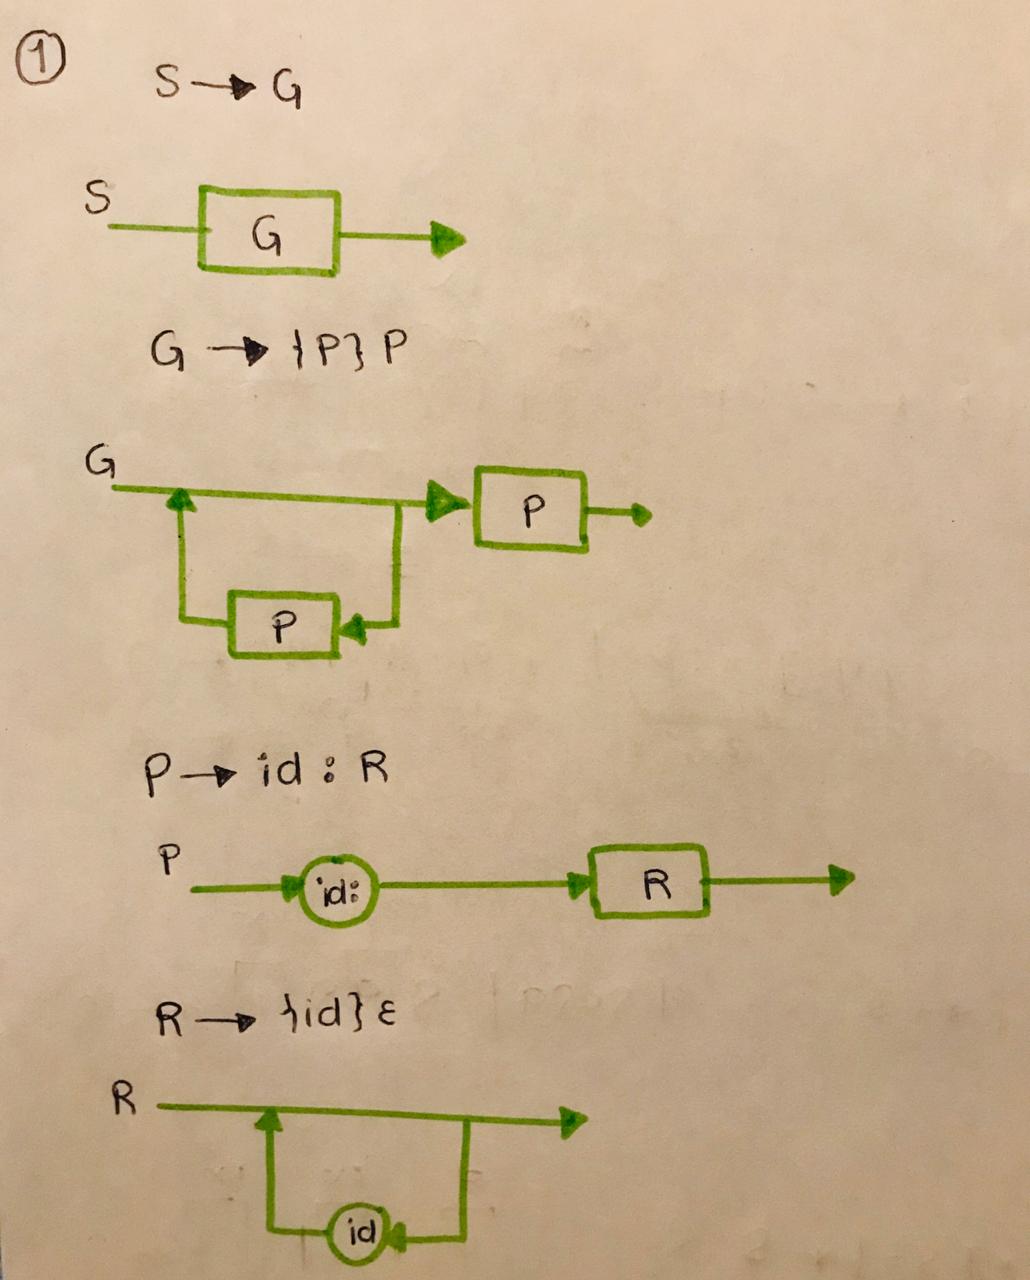 ①
S → G
S
G
G → {P} P
G
P
P
P → id : R
P
id:
R
R → {id} ε
R
id